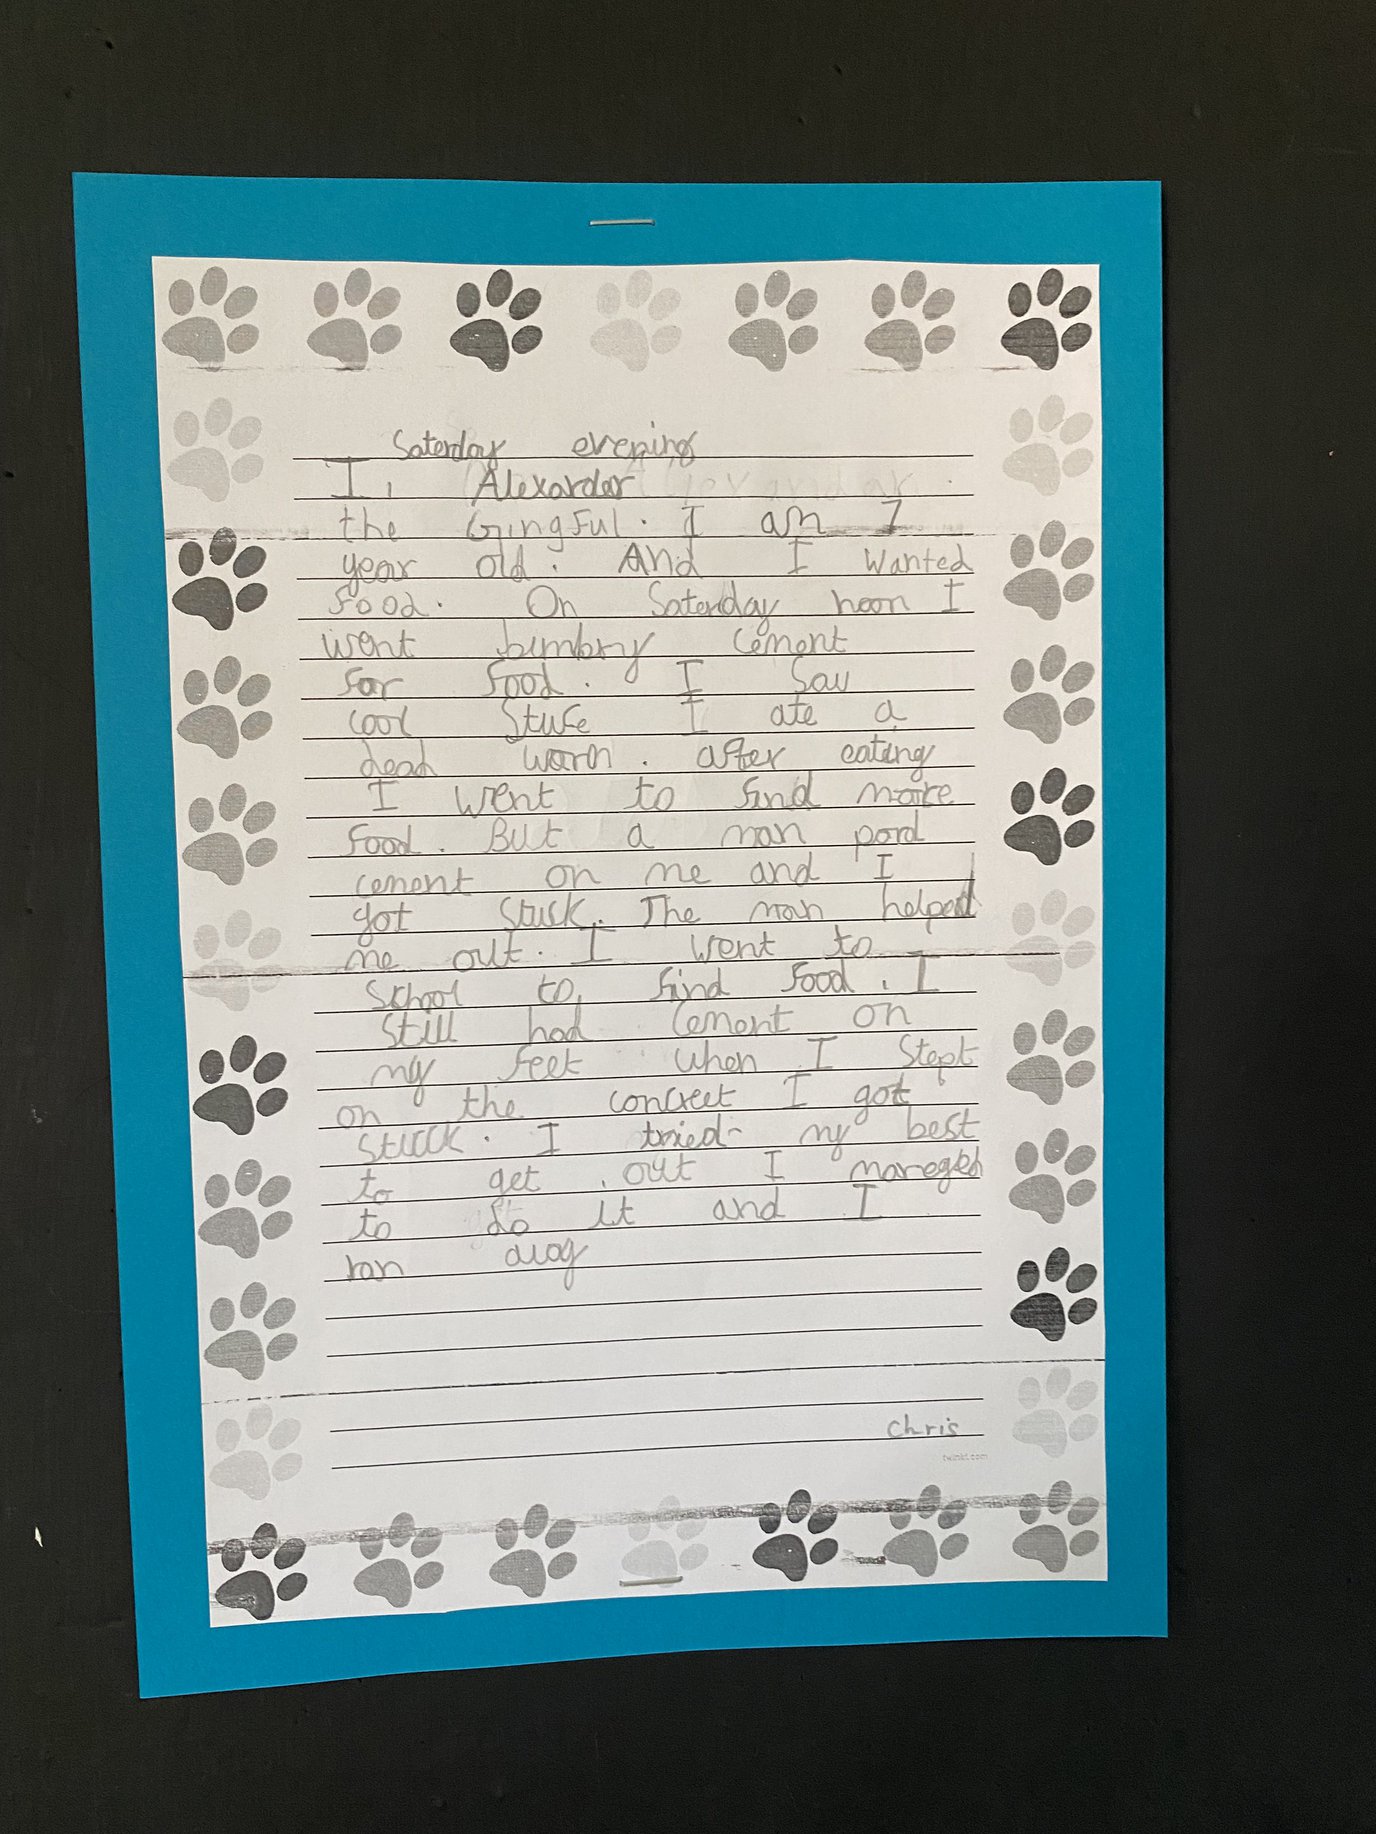 Saterday evening
I, Alexarder
the GingFul. I am 7
year old. And I wanted
Food. On Saterday noon I
went bimbmy cement
For Food. I Sau
cool Stufe I ate a
dead worm. after eating
I went to find more
Food. But a man pord
cement on me and I
got stuck. The man helped
me out. I went to
School to, find Food. I
Still had cement on
my feet when I Stept
on the concreet I got
stuck. I tried my best
to get out I maneged
to do it and I
ran
chris
twinkl.com